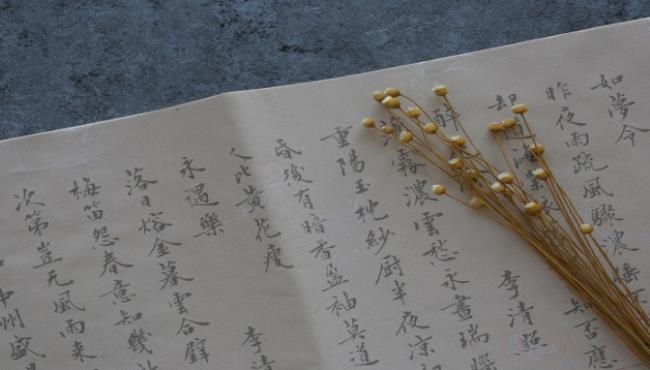 如夢令
昨夜雨疏風驟濃睡不
却道海棠依知否應
醉李清照
霧濃雲愁永晝瑞腦
重陽玉枕紗厨半夜凉
昏後有暗香盈袖莫道
人比黃花瘦
永遇樂 李清
落日熔金暮雲合璧
梅笛怨春意知幾
次第豈无風雨来
中州盛